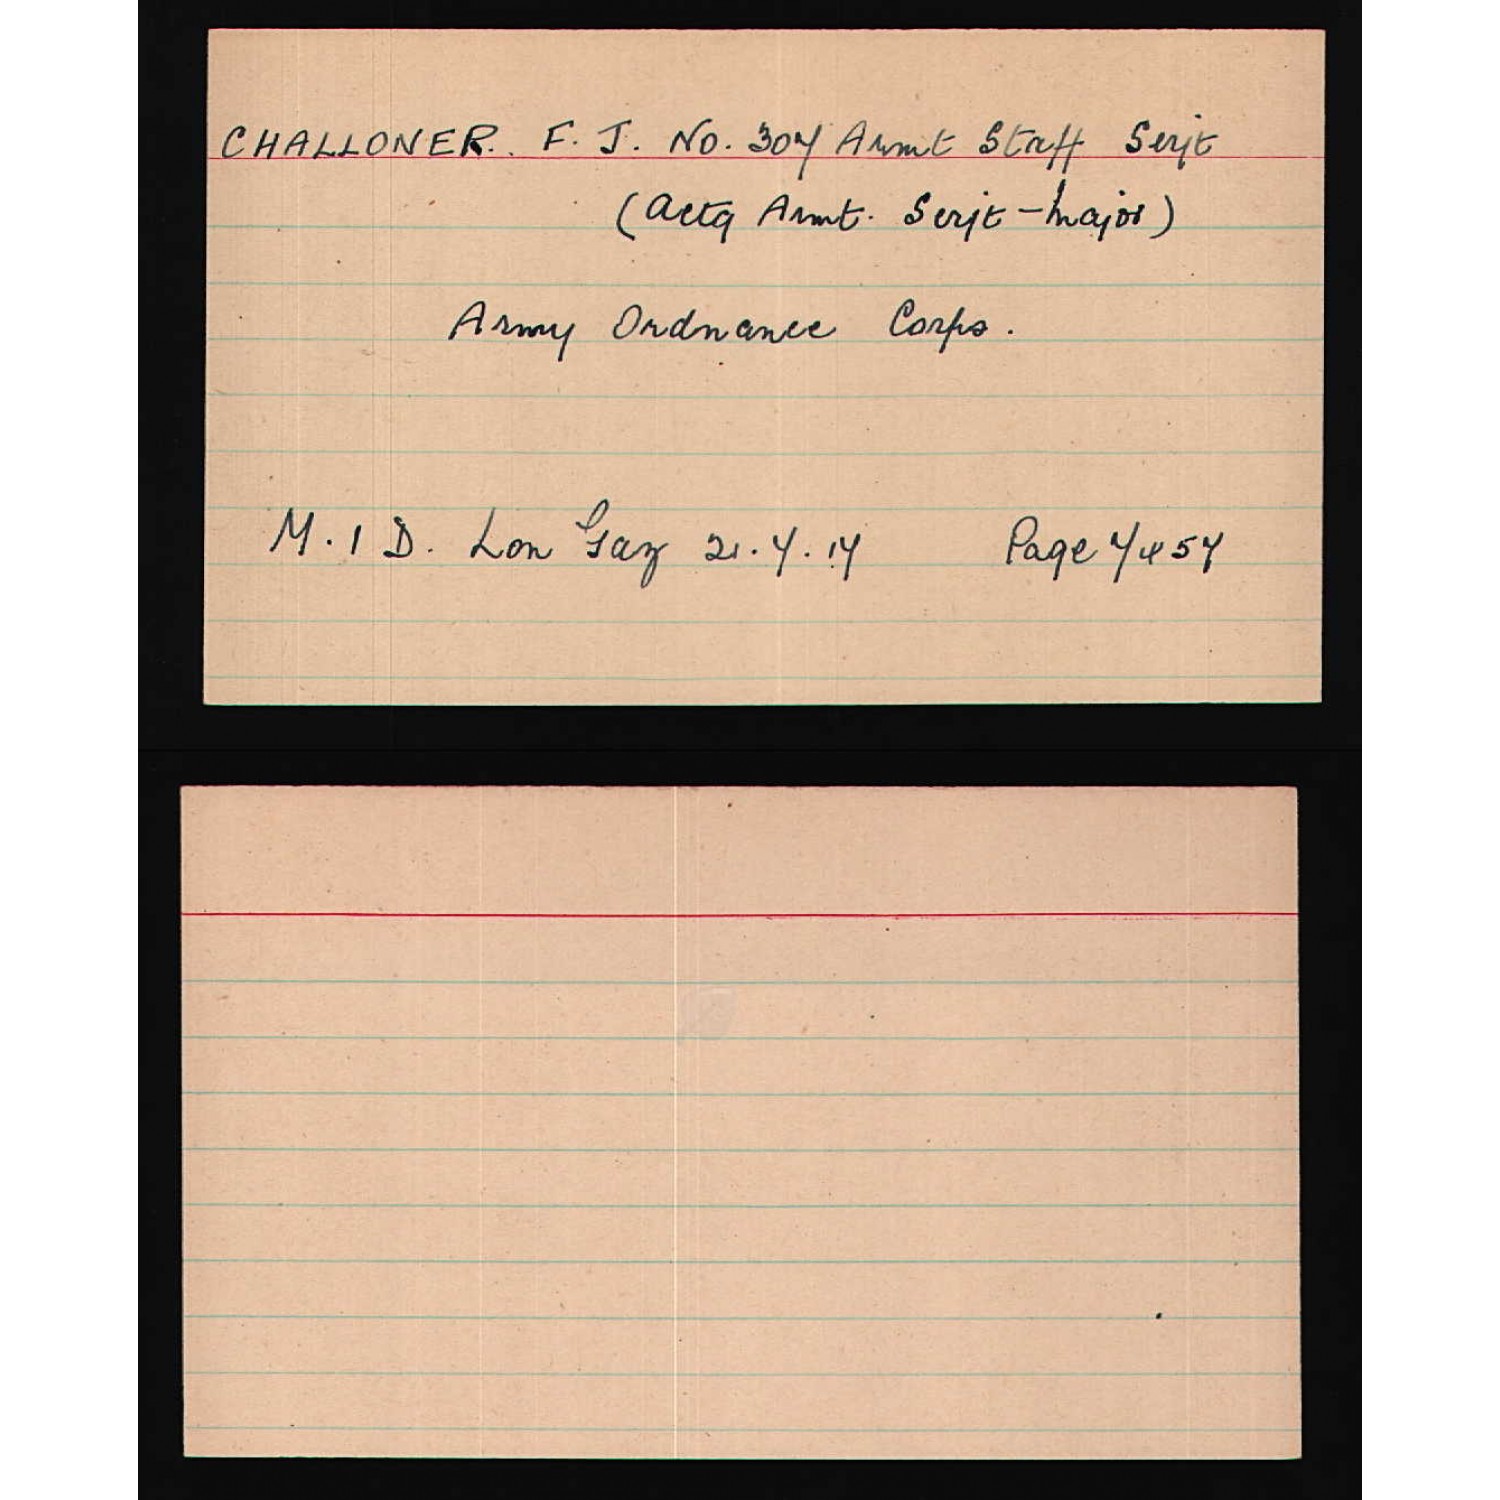 CHALLONER. F. J. No. 307 Armt Staff Serjt
(Actg Armt. Serjt-Major)
Army Ordnance Corps.
M.I D. Lon Gaz 21.7.17 Page 7457